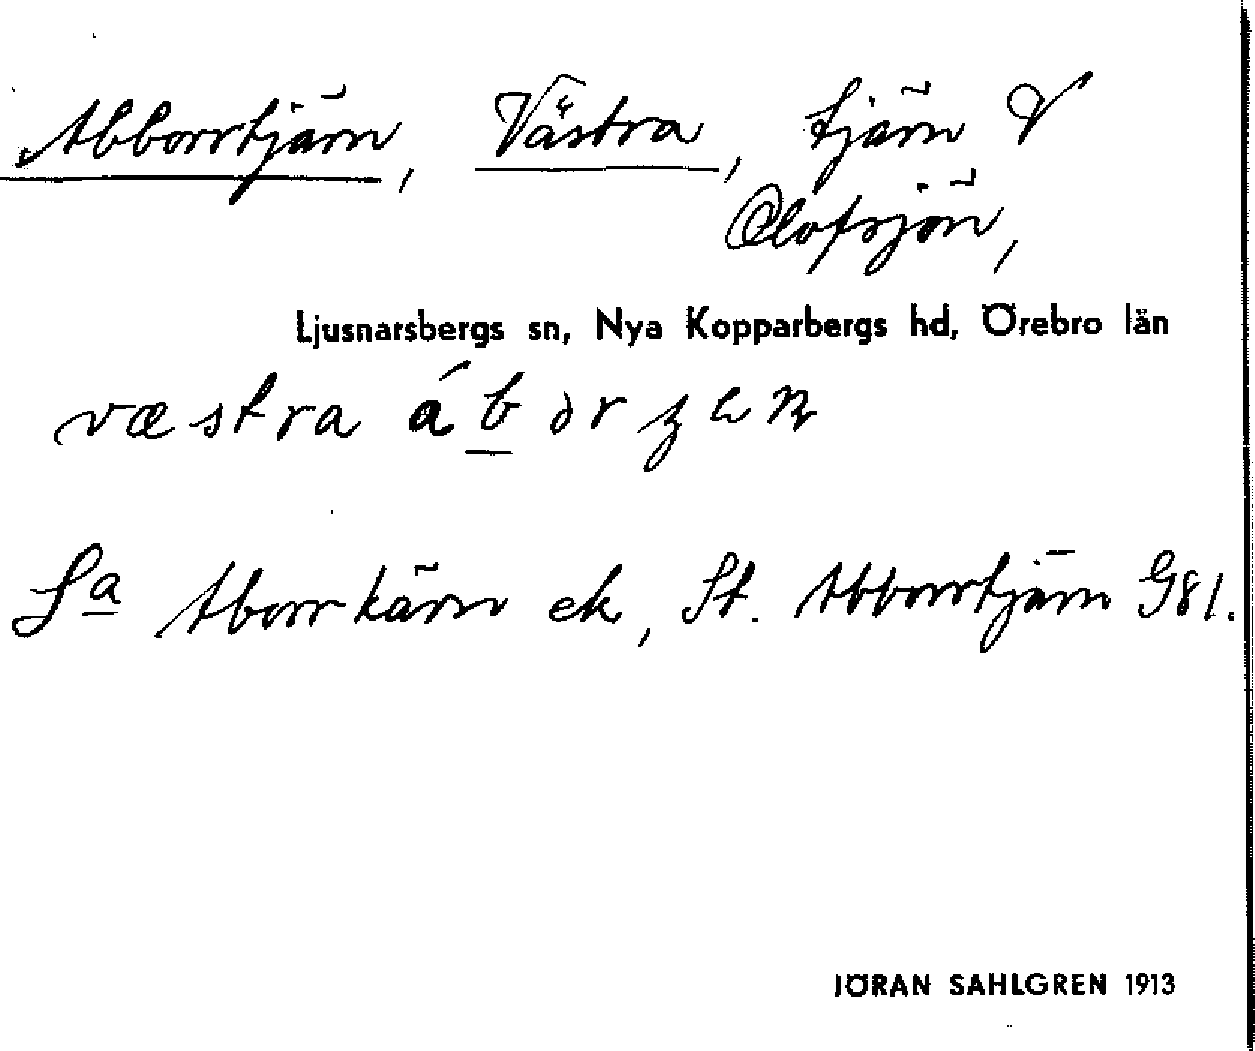 Abborrtjärn, Västra, tjärn V
Olofsjön,
Ljusnarsbergs sn, Nya Kopparbergs hd, Örebro län
væstra
Sa Aborrkärn ek, St. Abborrtjärn G81.
JÖRAN SAHLGREN 1913